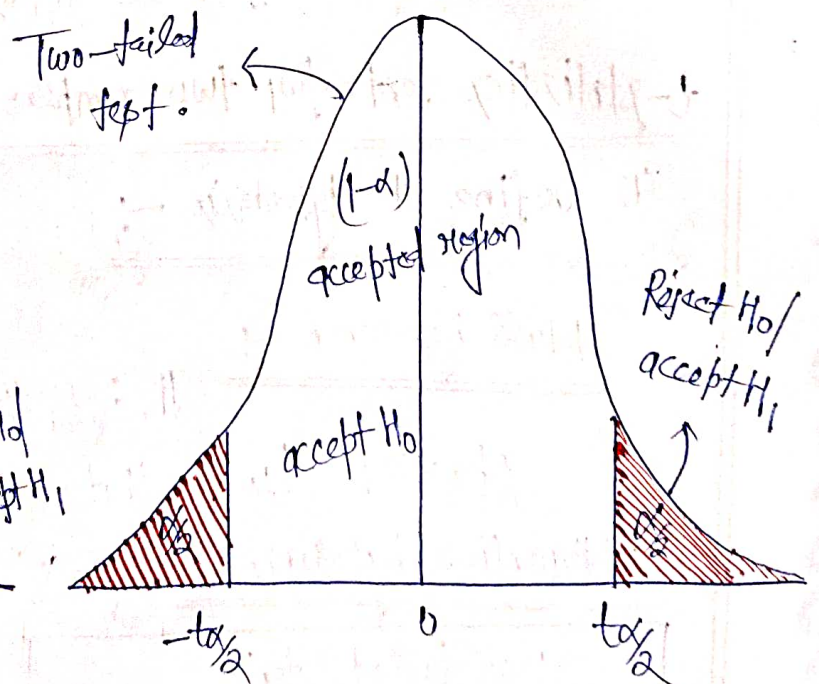 Two-tailed
test.
(1-α)
accepted region
Reject H0/
accept H1
accept H0
H1
α/2
α/2
-tα/2
0
tα/2